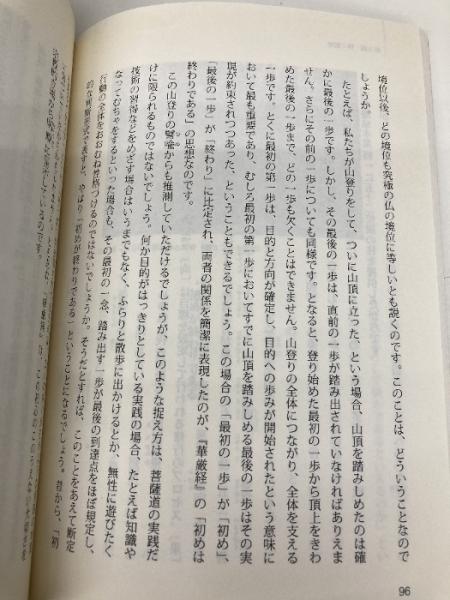 境位以後、どの境位も究極の仏の境位に等しいとも説くのです。このことは、どういうことなので
しょうか。
たとえば、私たちが山登りをして、ついに山頂に立った、という場合、山頂を踏みしめたのは確
かに最後の一歩です。しかし、その最後の一歩は、直前の一歩が踏み出されていなければありえま
せん。さらにその前の一歩についても同様です。となると、登り始めた最初の一歩から頂上をきわ
めた最後の一歩まで、どの一歩も欠くことはできません。山登りの全体につながり、全体を支える
一歩です。とくに最初の第一歩は、目的と方向が確定し、目的への歩みが開始されたという意味に
おいて最も重要であり、むしろ最初の第一歩においてすでに山頂を踏みしめる最後の一歩はその実
現が約束されつつあった、ということもできるでしょう。この場合の「最初の一歩」が「初め」、
「最後の一歩」が「終わり」に比定され、両者の関係を簡潔に表現したのが、『華厳経』の「初めは
終わりである」の思想なのです。
この山登りの譬喩からも推測していただけるでしょうが、このような捉え方は、菩薩道の実践だ
けに限られるものではないでしょう。何か目的がはっきりとしている実践の場合、たとえば知識や
技術の習得などをめざす場合はいうまでもなく、ふらりと散歩に出かけるとか、無性に遊びたく
なってむちゃをするといった場合も、その最初の一念、踏み出す一歩が最後の到達点をほぼ規定し、
行動の全体をおおむね性格づけるのではないでしょうか。そうだとすれば、このことをあえて断定
的な判断形式で表すと、やはり「初めが終わりである」ということになるでしょう。昔から、「初
96